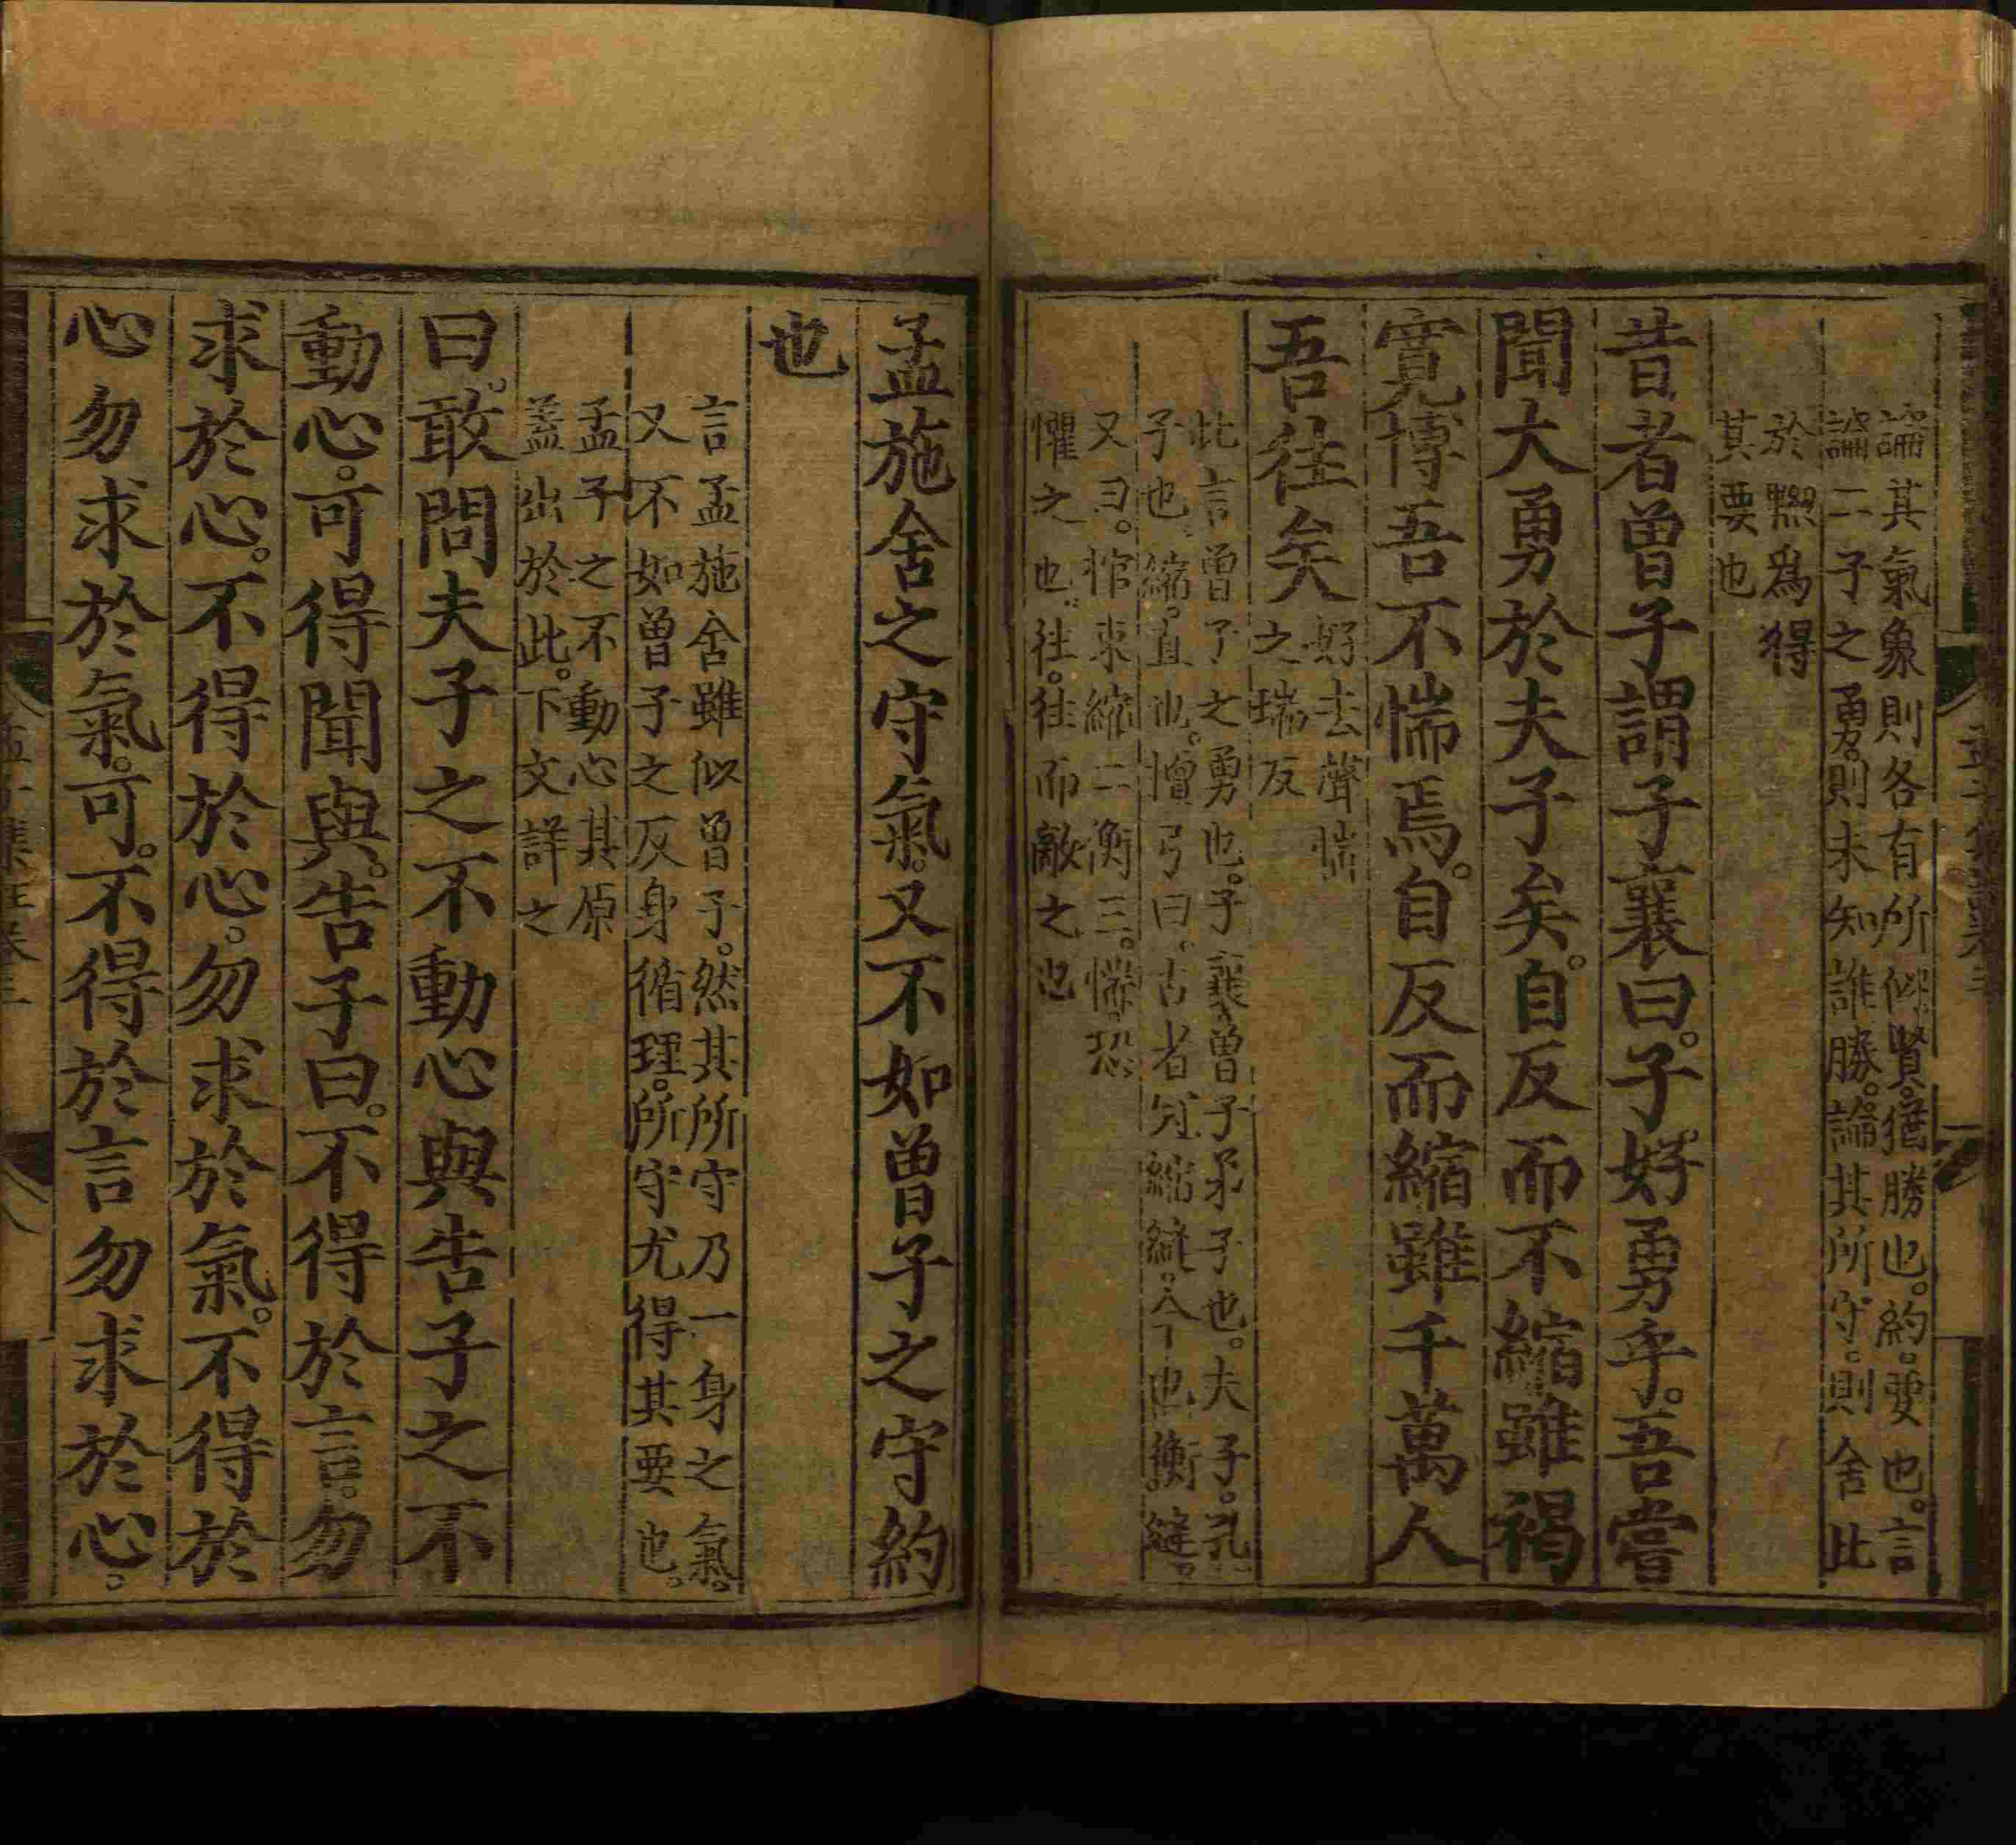 論其氣象則各有所似。賢。猶勝也。約。要也。言
論二子之勇。則未知誰勝。論其所守。則舍此
於黝爲得
其要也
昔者曾子謂子襄曰。子好勇乎。吾嘗
聞大勇於夫子矣。自反而不縮雖褐
寛博吾不惴焉。自反而縮雖千萬人
吾往矣
好去聲惴
之瑞反
此言曾子之勇也。子襄曾子弟子也。夫子。孔
子也。縮。直也。檀弓曰。古者冠縮縫。今也衡縫。
又曰。棺束縮二衡三。惴。恐
懼之也。往。往而敵之也
孟施舍之守氣。又不如曾子之守約
也
言孟施舍雖似曾子。然其所守乃一身之氣。
又不如曾子之反身循理。所守尤得其要也。
孟子之不動心其原
蓋出於此。下文詳之
曰。敢問夫子之不動心與告子之不
動心。可得聞與。告子曰。不得於言。勿
求於心。不得於心。勿求於氣。不得於
心勿求於氣。可。不得於言勿求於心。